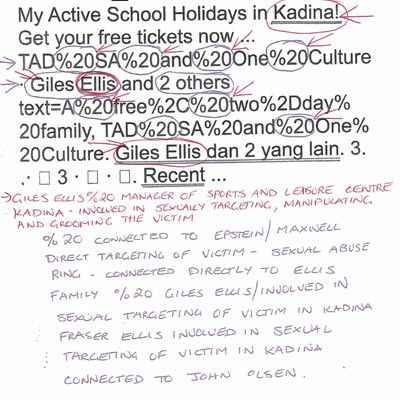 My Active School Holidays in Kadina!
Get your free tickets now ...
TAD%20SA%20and%20One%20Culture
· Giles Ellis and 2 others
text=A%20free%2C%20two%2Dday%
20family, TAD%20SA%20and%20One%
20Culture. Giles Ellis dan 2 yang lain. 3.
. · □ 3 · □ · □. Recent ...
→ GILES ELLIS %20 MANAGER OF SPORTS AND LEISURE CENTRE
KADINA - INVOLVED IN SEXUALLY TARGETING, MANIPULATING,
AND GROOMING THE VICTIM
%20 CONNECTED TO EPSTEIN/MAXWELL
DIRECT TARGETING OF VICTIM - SEXUAL ABUSE
RING - CONNECTED DIRECTLY TO ELLIS
FAMILY %20 GILES ELLIS/INVOLVED IN
SEXUAL TARGETING OF VICTIM IN KADINA
FRASER ELLIS INVOLVED IN SEXUAL
TARGETING OF VICTIM IN KADINA
CONNECTED TO JOHN OLSEN.